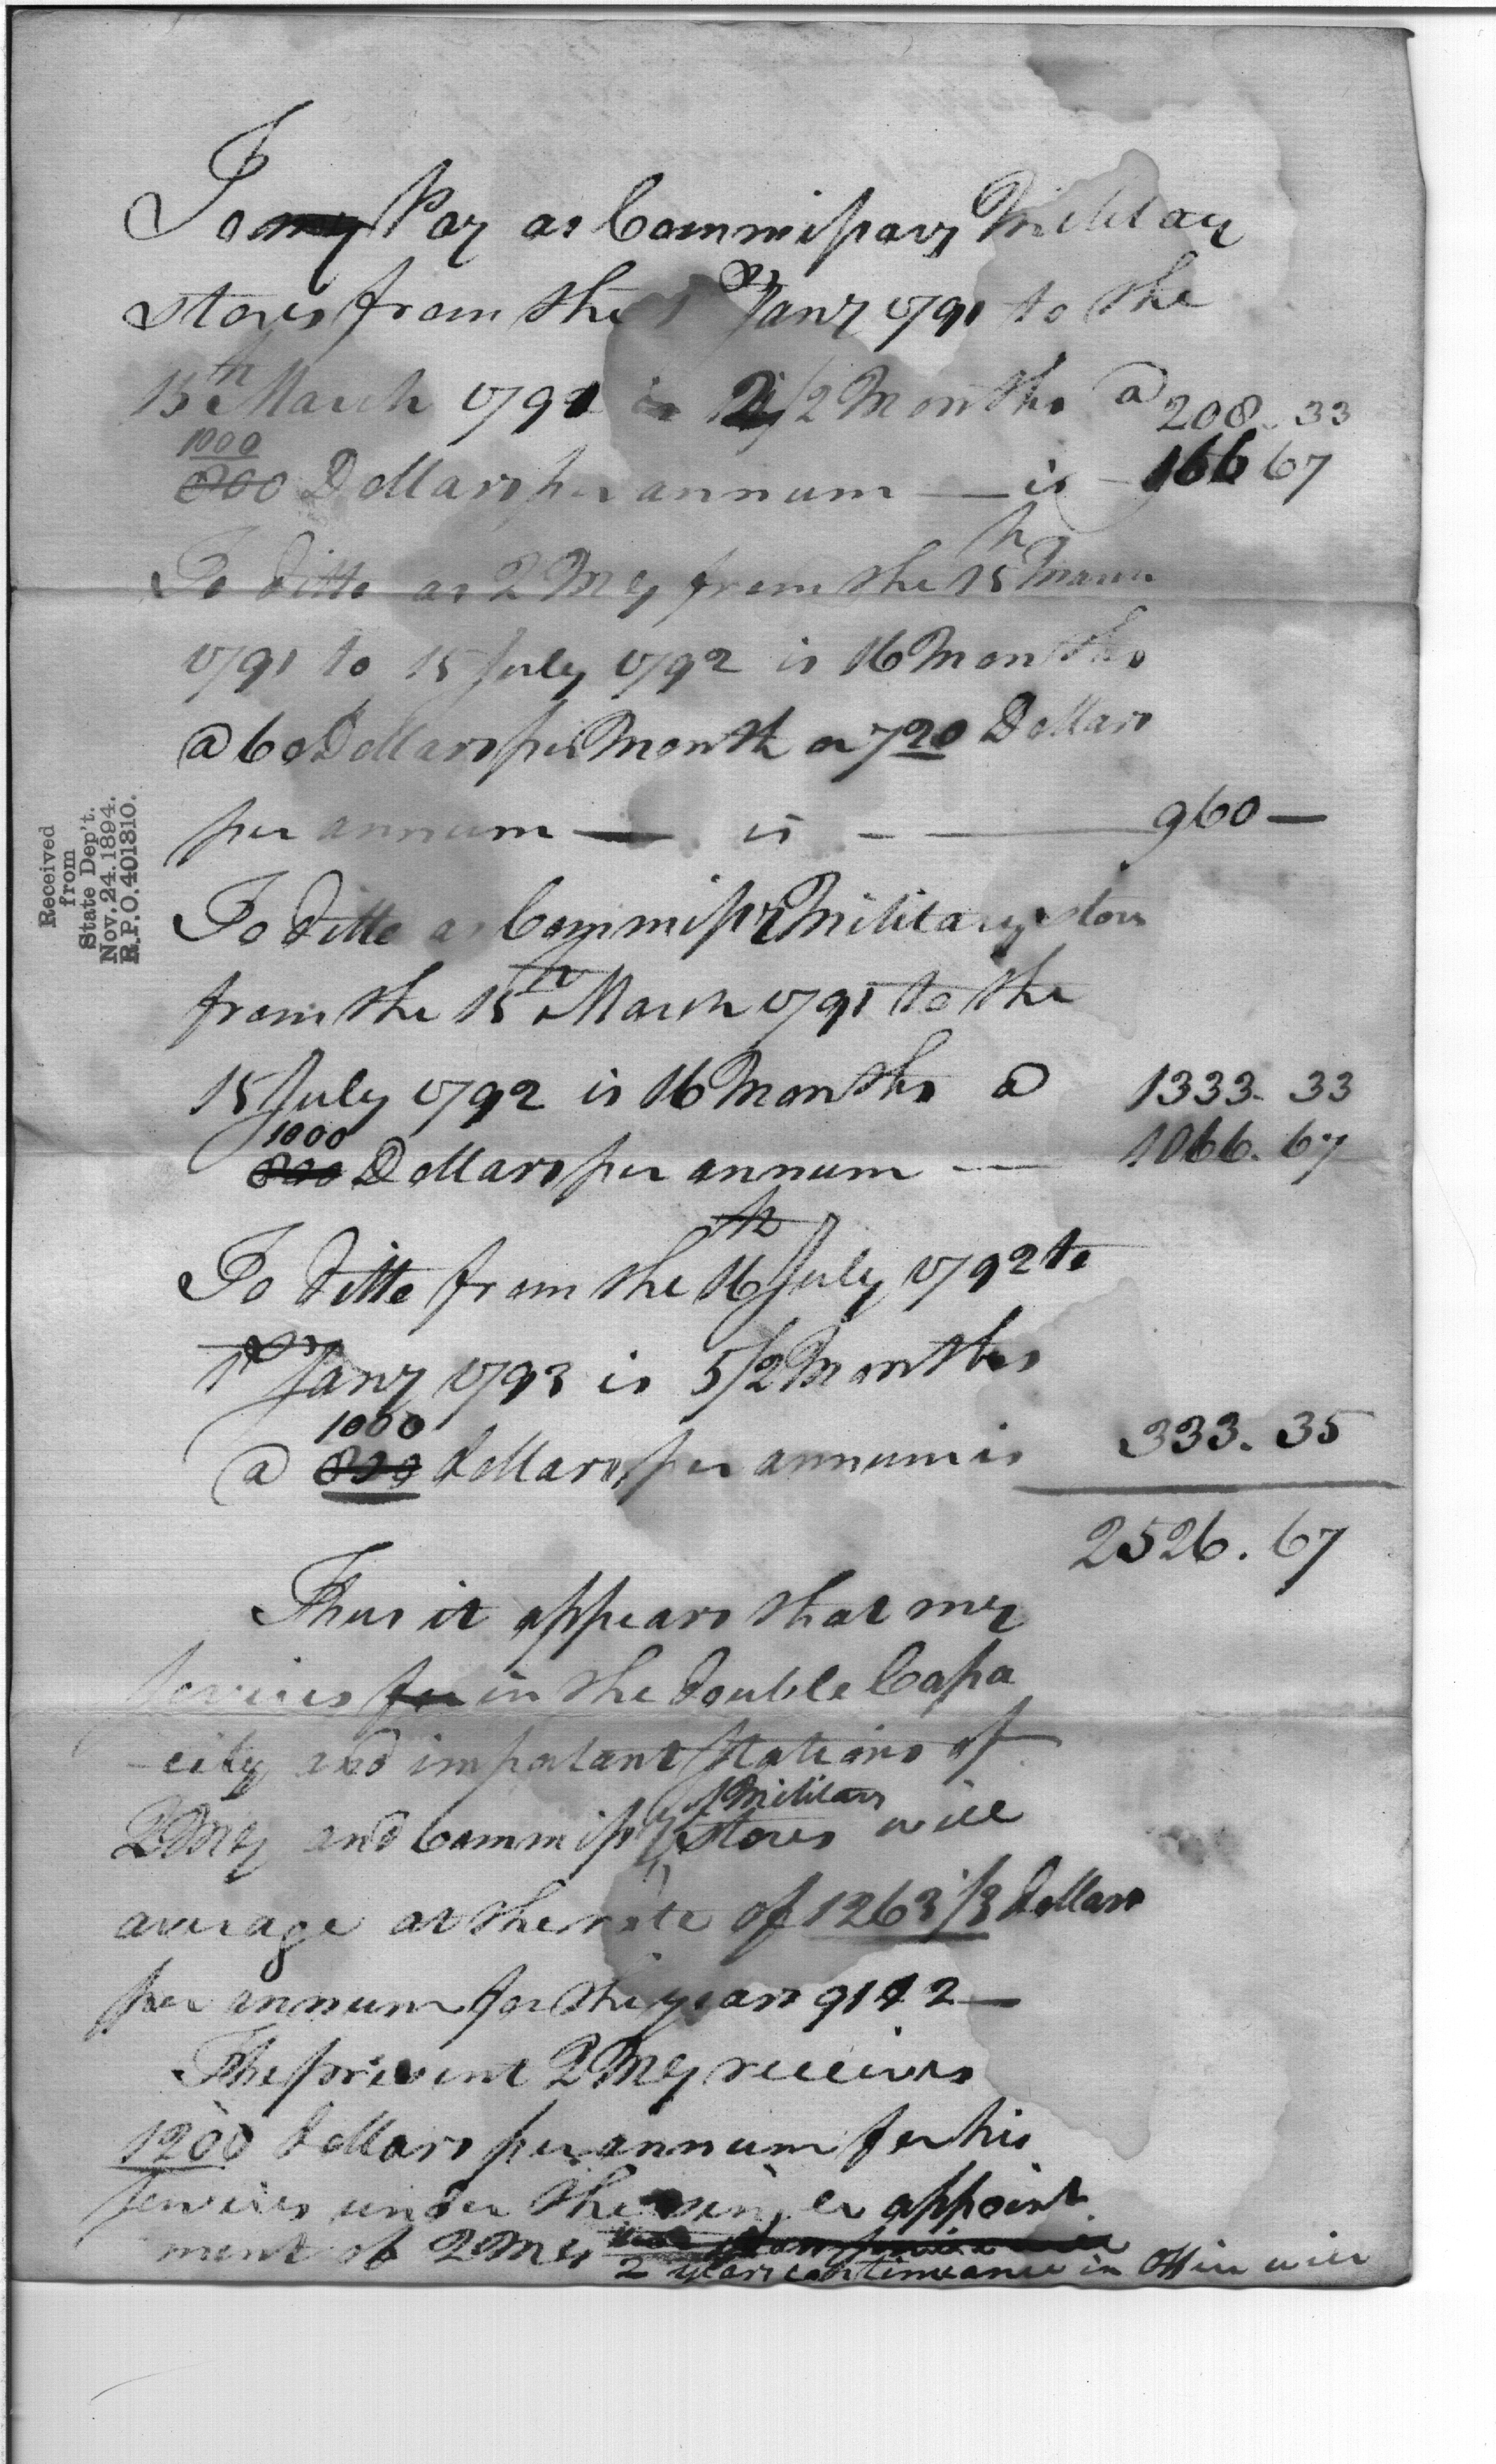 To my Pay as Commissary Military
stores from the 1st Jany 1791 to the
15th March 1791 is 2 1/2 Months @ 208. 33
1000
800 Dollars per annum — is — 166 67
To ditto as 2 M G from the 15th March
1791 to 15 July 1792 is 16 Months
@ 60 Dollars per Month or 720 Dollars
per annum — is — 960 —
To ditto as Commissy Military stores
from the 15th March 1791 to the
15 July 1792 is 16 Months @ 1333. 33
1000
800 Dollars per annum — 1066. 67
To ditto from the 16th July 1792 to
1st Jany 1793 is 5 1/2 Months
1000
@ 800 dollars per annum is 333. 35
2526. 67
Thus it appears that my
services for in the double Capa
city and important stations of
Military
2 M G and Commissy of stores will
average at the rate of 1263 1/3 dollars
per annum for the years 91 & 2 —
The present 2 M G receives
1200 dollars per annum for his
services under the single appoint
ment of 2 M G
2 years continuance in Office will
Received
from
State Dep't.
Nov. 24. 1894.
R.P.O. 401310.